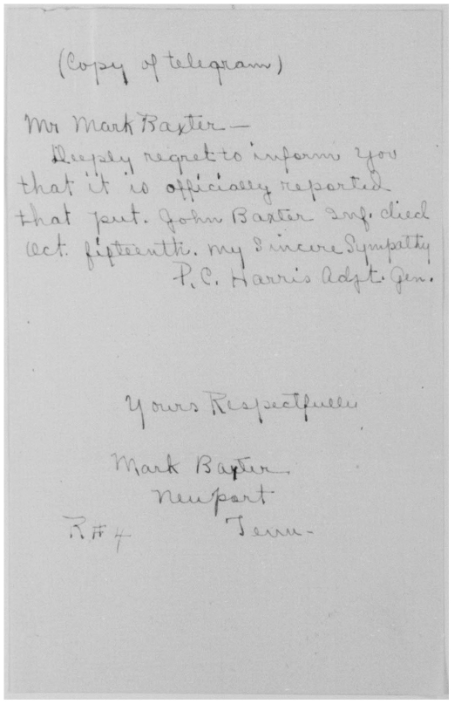 (Copy of telegram)
Mr Mark Baxter—
Deeply regret to inform you
that it is officially reported
that pvt. John Baxter Inf. died
Oct. fifteenth. My Sincere Sympathy
P. C. Harris Adjt. Gen.
Yours Respectfully
Mark Baxter
Newport
R#4 Tenn-